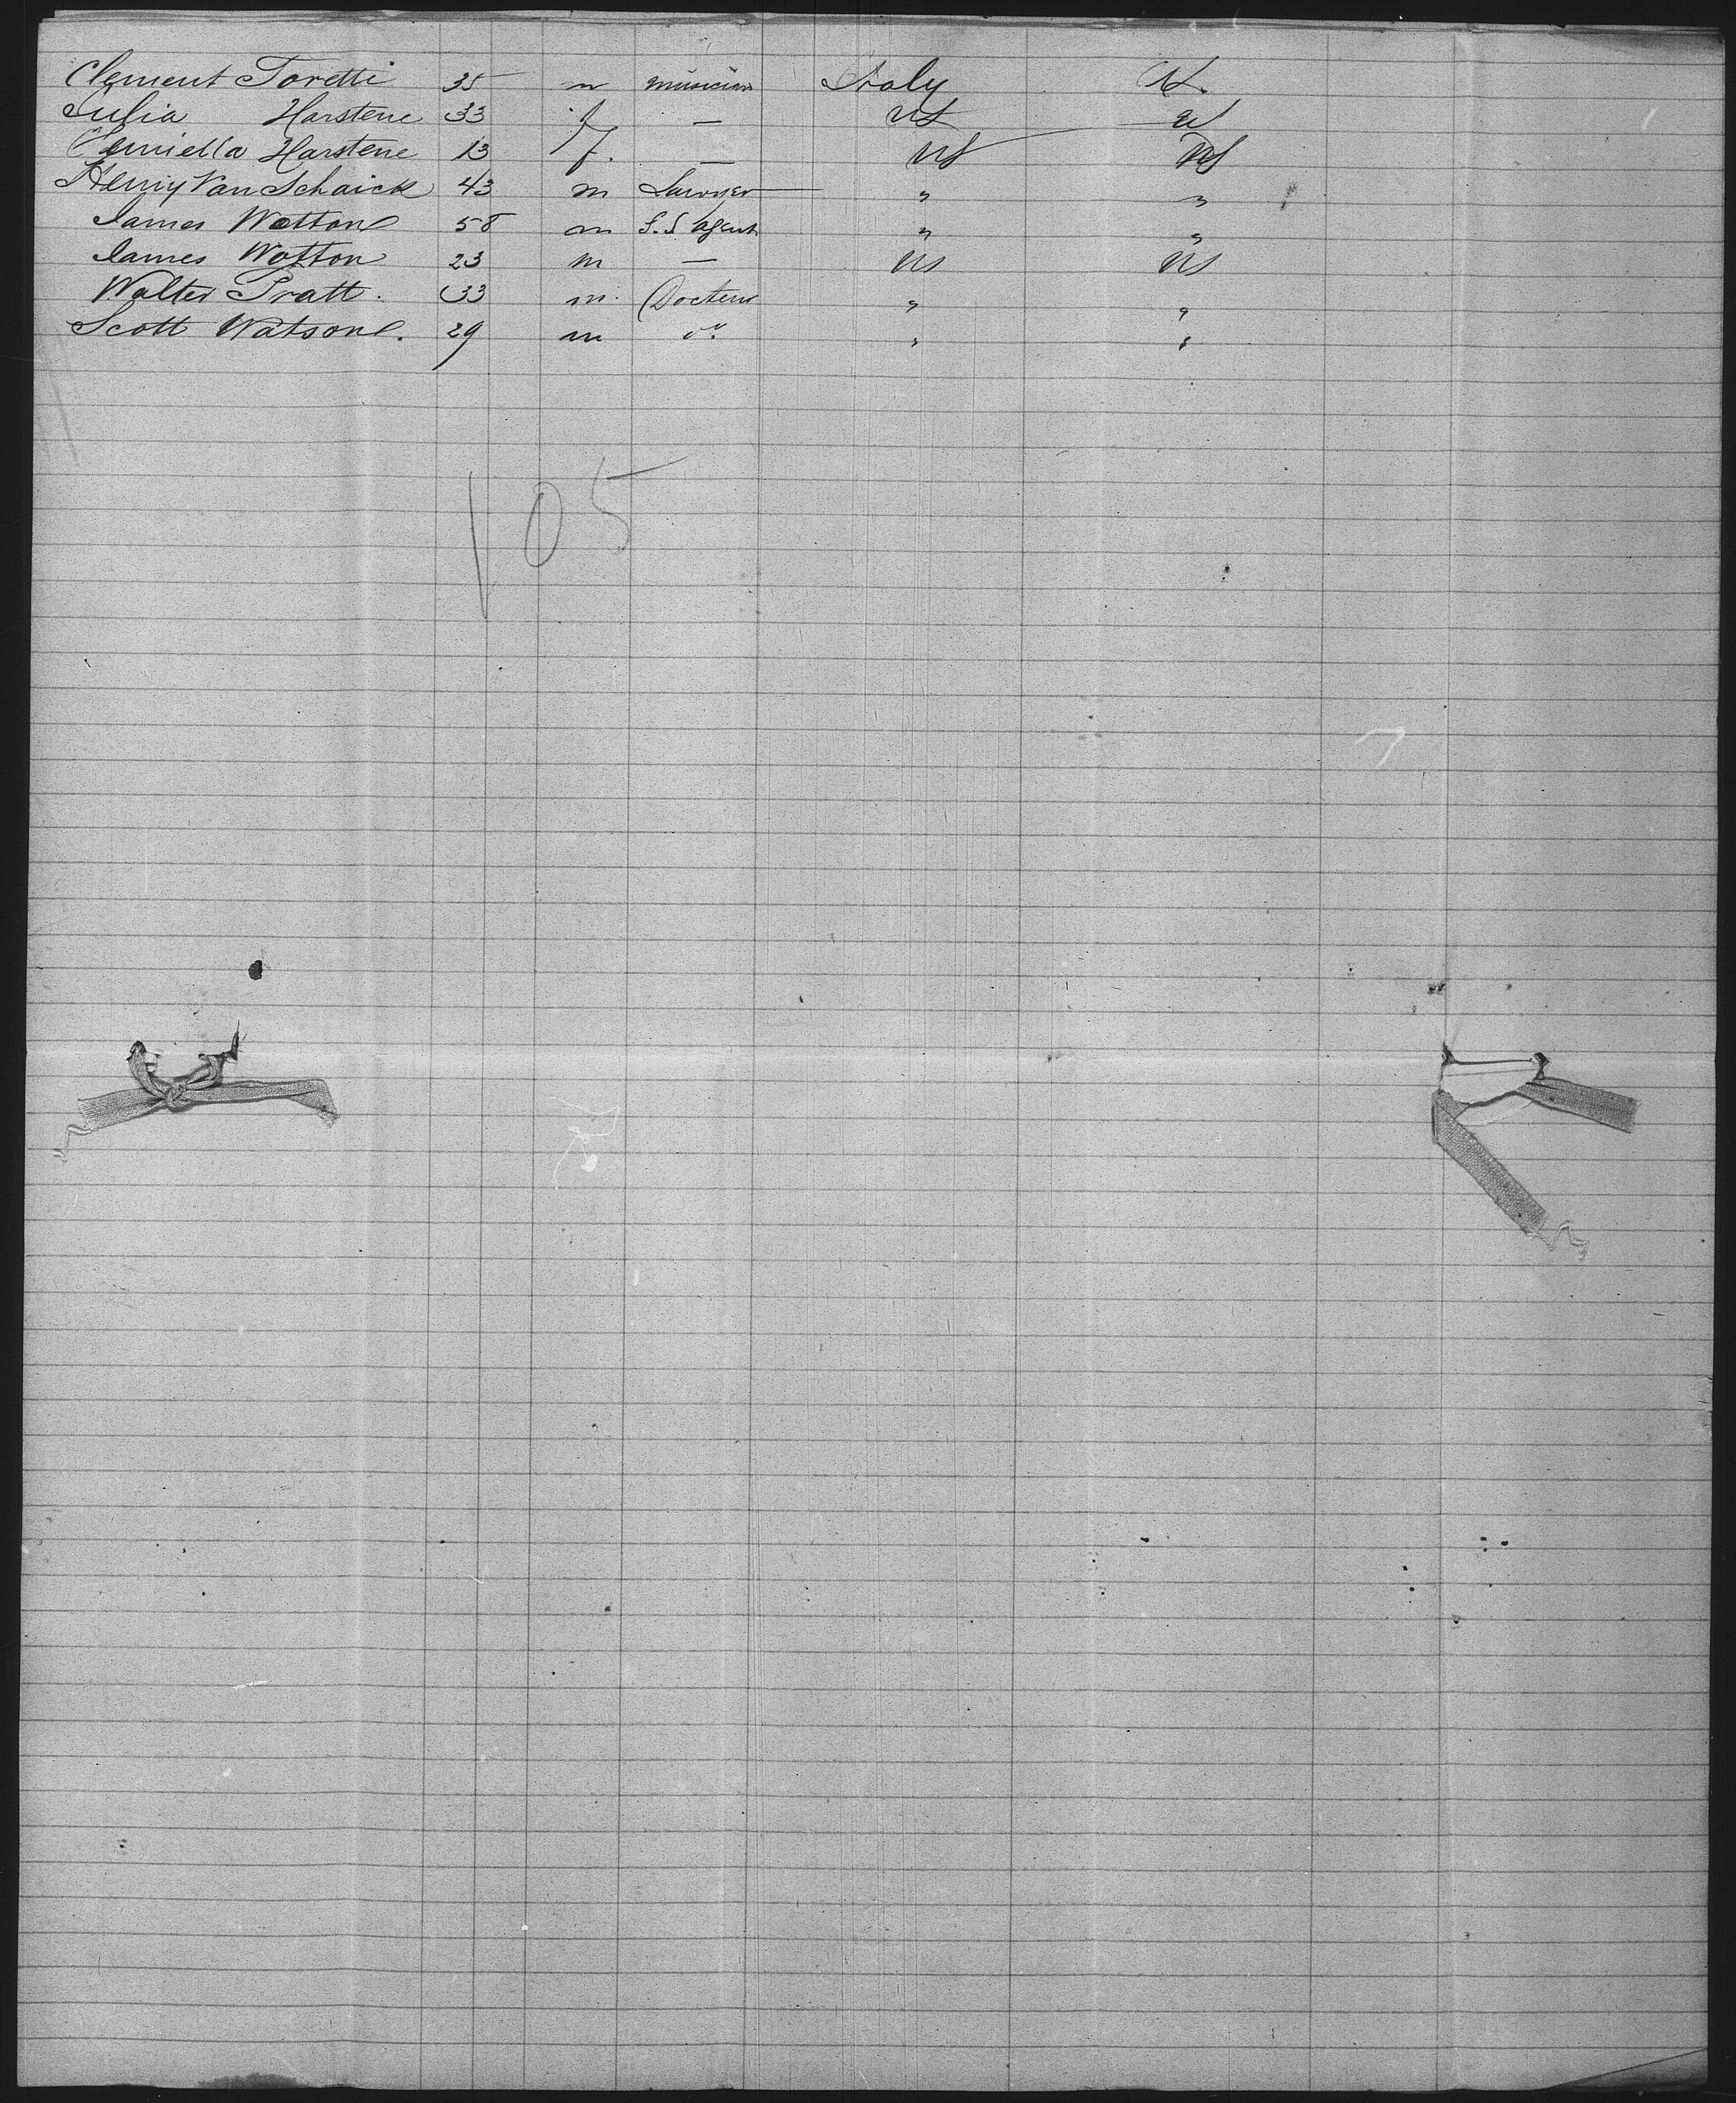 Clement Toretti 35 m musician Italy US.
Julia Harstene 33 f — US US
Harstene 13 f. — US US
Henry Van Schaick 43 m Lawyer " "
James Wotton 58 m S.S Agent " "
James Wotton 23 m — US US
Walter Pratt. 33 m. Docteur " "
Scott Watson. 29 m do. " "
105